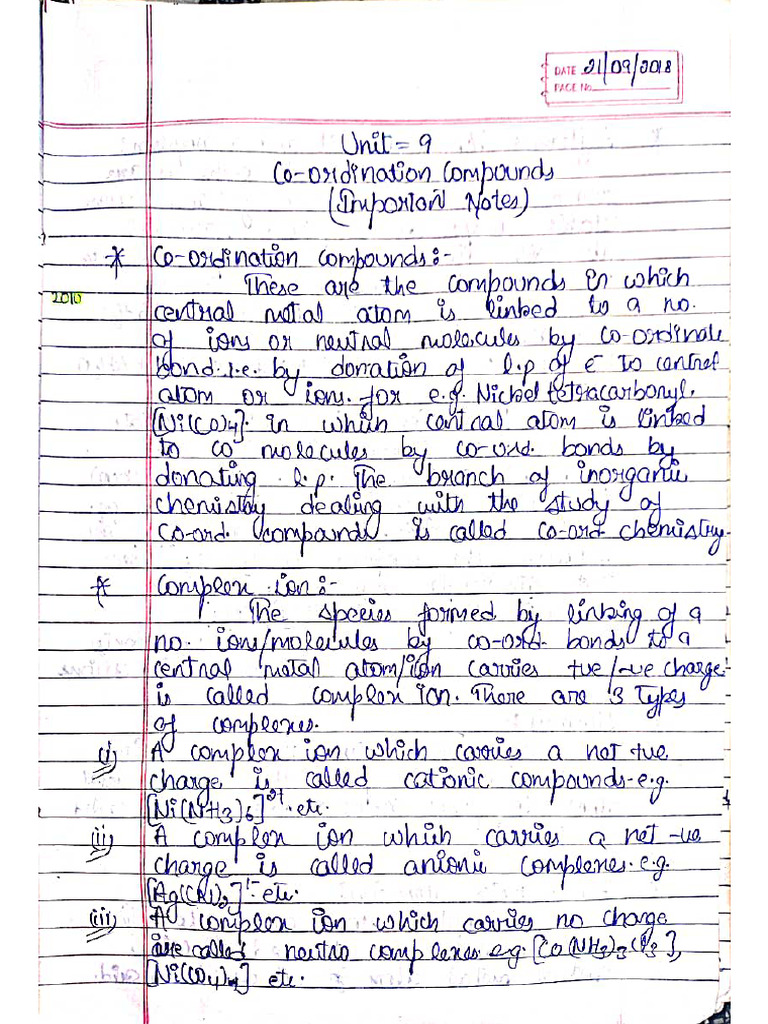 DATE 21/09/2018
PAGE No.
Unit = 9
Co-ordination Compounds
(Important Notes)
* Co-ordination compounds:-
2010 These are the compounds in which
central metal atom is linked to a no.
of ions or neutral molecules by co-ordinate
bond i.e. by donation of l.p of e- to central
atom or ions. for e.g. Nickel tetracarbonyl.
[Ni(CO)4]. in which central atom is linked
to CO molecules by co-ord. bonds by
donating l.p. The branch of inorganic
chemistry dealing with the study of
co-ord. compounds is called co-ord chemistry.
* Complex ion:-
The species formed by linking of a
no. ions/molecules by co-ord. bonds to a
central metal atom/ion carries +ve/-ve charge
is called complex ion. There are 3 types
of complexes.
(i) A complex ion which carries a net +ve
charge is called cationic compounds e.g.
[Ni(NH3)6]2+ etc.
(ii) A complex ion which carries a net -ve
charge is called anionic complexes. e.g.
[Ag(CN)2]1- etc.
(iii) A complex ion which carries no charge
are called neutro complexes e.g. [Co(NH3)3Cl3],
[Ni(CO4)4] etc.